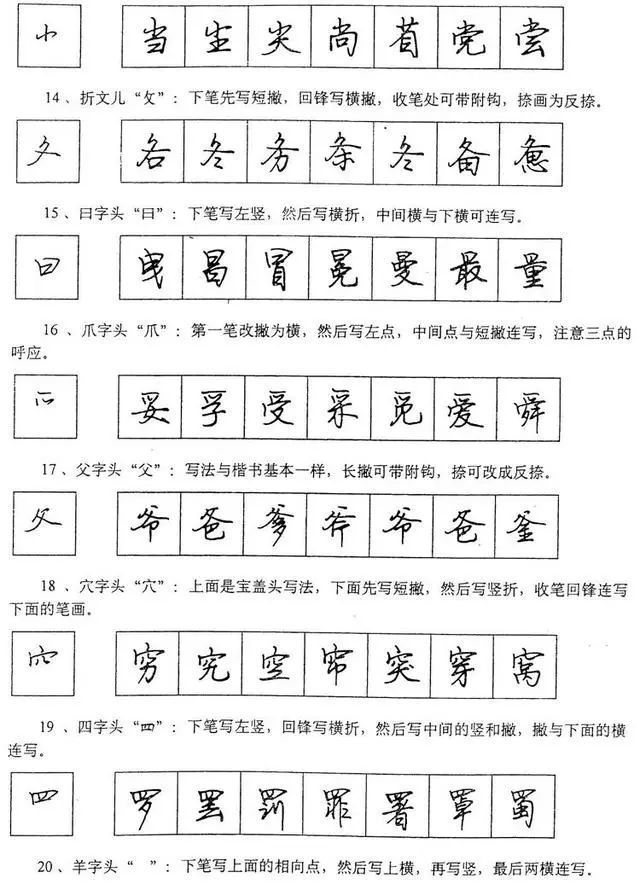 ⺌ 当 尘 尖 尚 肖 党 尝
14、折文儿“攵”：下笔先写短撇，回锋写横撇，收笔处可带附钩，捺画为反捺。
夂 各 冬 务 条 冬 备 惫
15、曰字头“曰”：下笔写左竖，然后写横折，中间横与下横可连写。
曰 曳 昌 冒 冕 曼 最 量
16、爪字头“爪”：第一笔改撇为横，然后写左点，中间点与短撇连写，注意三点的
呼应。
爫 妥 孚 受 采 觅 爱 舜
17、父字头“父”：写法与楷书基本一样，长撇可带附钩，捺可改成反捺。
父 爷 爸 爹 斧 爷 爸 釜
18、穴字头“穴”：上面是宝盖头写法，下面先写短撇，然后写竖折，收笔回锋连写
下面的笔画。
穴 穷 究 空 帘 突 穿 窝
19、四字头“罒”：下笔写左竖，回锋写横折，然后写中间的竖和撇，撇与下面的横
连写。
罒 罗 罢 罚 罪 署 罩 蜀
20、羊字头“ ”：下笔写上面的相向点，然后写上横，再写竖，最后两横连写。